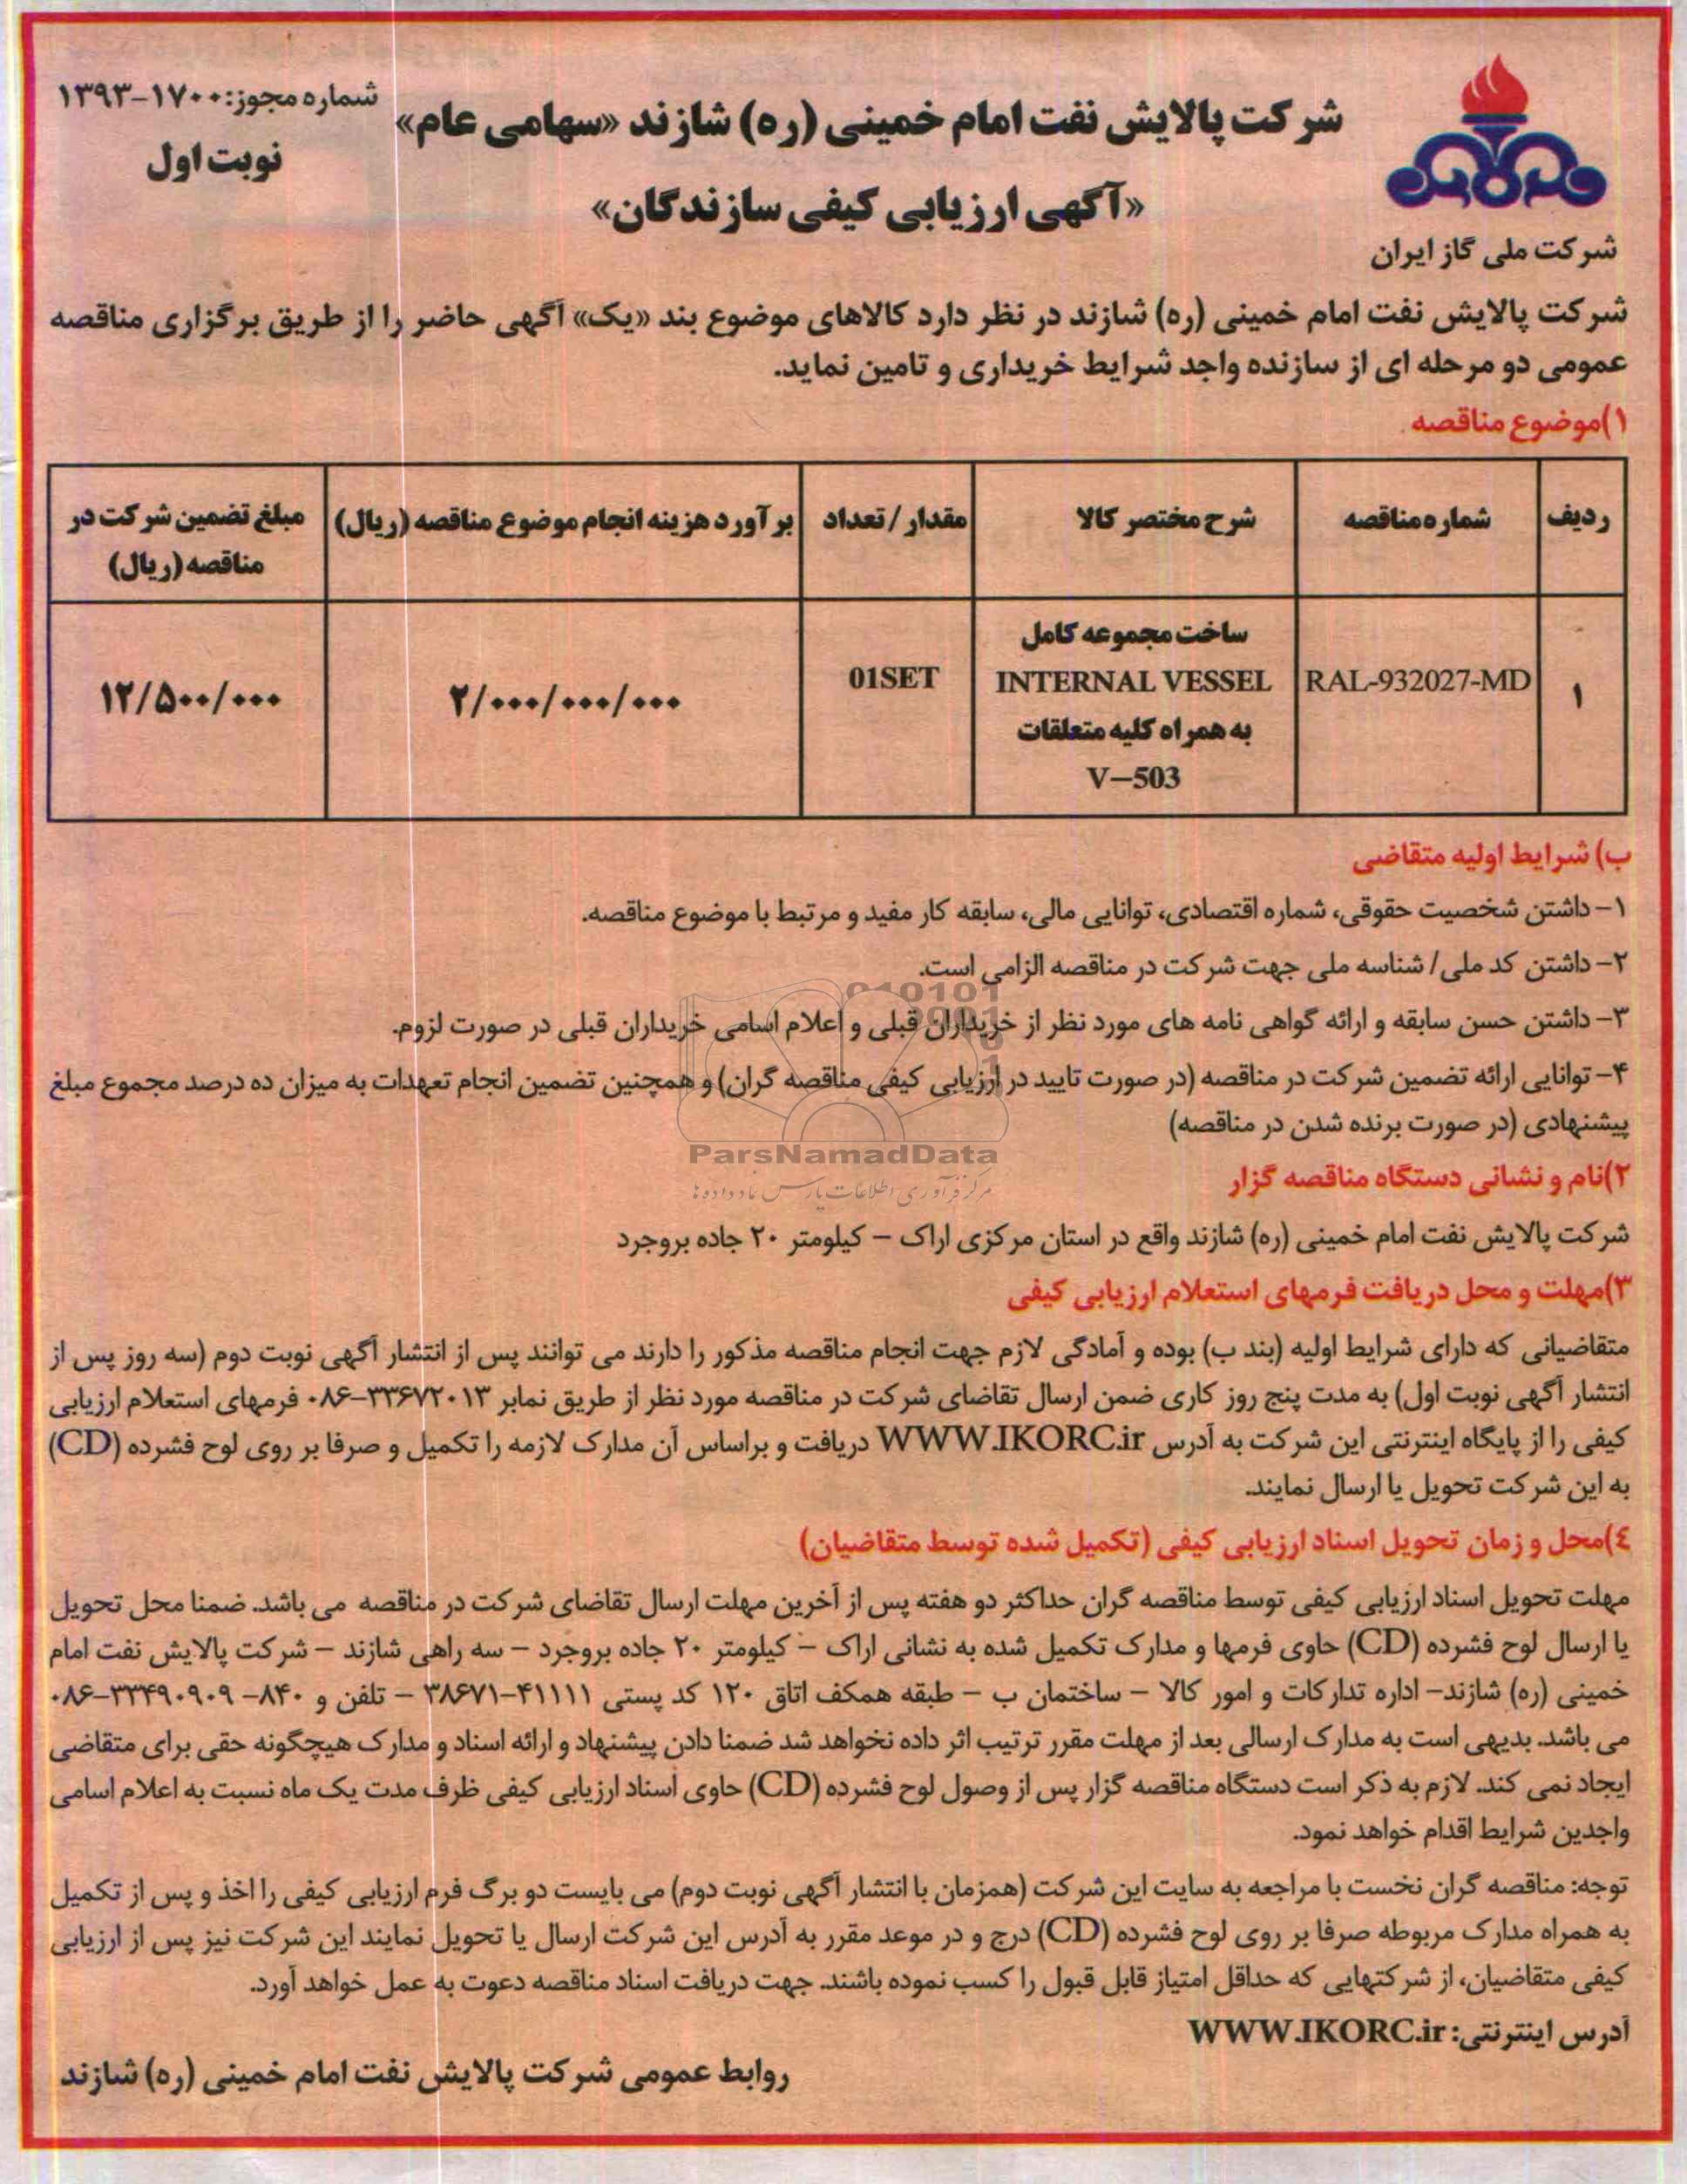 شرکت ملی گاز ایران
شرکت پالایش نفت امام خمینی (ره) شازند «سهامی عام»
شماره مجوز: ۱۷۰۰-۱۳۹۳
نوبت اول
«آگهی ارزیابی کیفی سازندگان»
شرکت پالایش نفت امام خمینی (ره) شازند در نظر دارد کالاهای موضوع بند «یک» آگهی حاضر را از طریق برگزاری مناقصه
عمومی دو مرحله ای از سازنده واجد شرایط خریداری و تامین نماید.
۱)موضوع مناقصه
ردیف
شماره مناقصه
شرح مختصر کالا
مقدار / تعداد
برآورد هزینه انجام موضوع مناقصه (ریال)
مبلغ تضمین شرکت در
مناقصه (ریال)
۱
RAL-932027-MD
ساخت مجموعه کامل
INTERNAL VESSEL
به همراه کلیه متعلقات
V-503
01SET
۲/۰۰۰/۰۰۰/۰۰۰
۱۲/۵۰۰/۰۰۰
ب) شرایط اولیه متقاضی
۱- داشتن شخصیت حقوقی، شماره اقتصادی، توانایی مالی، سابقه کار مفید و مرتبط با موضوع مناقصه.
۲- داشتن کد ملی/ شناسه ملی جهت شرکت در مناقصه الزامی است.
۳- داشتن حسن سابقه و ارائه گواهی نامه های مورد نظر از خریداران قبلی و اعلام اسامی خریداران قبلی در صورت لزوم.
۴- توانایی ارائه تضمین شرکت در مناقصه (در صورت تایید در ارزیابی کیفی مناقصه گران) و همچنین تضمین انجام تعهدات به میزان ده درصد مجموع مبلغ
پیشنهادی (در صورت برنده شدن در مناقصه)
ParsNamadData
مرکز فرآوری اطلاعات پارس نماد داده ها
۲)نام و نشانی دستگاه مناقصه گزار
شرکت پالایش نفت امام خمینی (ره) شازند واقع در استان مرکزی اراک – کیلومتر ۲۰ جاده بروجرد
۳)مهلت و محل دریافت فرمهای استعلام ارزیابی کیفی
متقاضیانی که دارای شرایط اولیه (بند ب) بوده و آمادگی لازم جهت انجام مناقصه مذکور را دارند می توانند پس از انتشار آگهی نوبت دوم (سه روز پس از
انتشار آگهی نوبت اول) به مدت پنج روز کاری ضمن ارسال تقاضای شرکت در مناقصه مورد نظر از طریق نمابر ۳۳۶۷۲۰۱۳-۰۸۶ فرمهای استعلام ارزیابی
کیفی را از پایگاه اینترنتی این شرکت به آدرس WWW.IKORC.ir دریافت و براساس آن مدارک لازمه را تکمیل و صرفا بر روی لوح فشرده (CD)
به این شرکت تحویل یا ارسال نمایند.
٤)محل و زمان تحویل اسناد ارزیابی کیفی (تکمیل شده توسط متقاضیان)
مهلت تحویل اسناد ارزیابی کیفی توسط مناقصه گران حداکثر دو هفته پس از آخرین مهلت ارسال تقاضای شرکت در مناقصه می باشد. ضمنا محل تحویل
یا ارسال لوح فشرده (CD) حاوی فرمها و مدارک تکمیل شده به نشانی اراک – کیلومتر ۲۰ جاده بروجرد – سه راهی شازند – شرکت پالایش نفت امام
خمینی (ره) شازند- اداره تدارکات و امور کالا – ساختمان ب – طبقه همکف اتاق ۱۲۰ کد پستی ۴۱۱۱۱-۳۸۶۷۱ – تلفن و ۸۴۰- ۳۳۴۹۰۹۰۹-۰۸۶
می باشد. بدیهی است به مدارک ارسالی بعد از مهلت مقرر ترتیب اثر داده نخواهد شد ضمنا دادن پیشنهاد و ارائه اسناد و مدارک هیچگونه حقی برای متقاضی
ایجاد نمی کند. لازم به ذکر است دستگاه مناقصه گزار پس از وصول لوح فشرده (CD) حاوی اسناد ارزیابی کیفی ظرف مدت یک ماه نسبت به اعلام اسامی
واجدین شرایط اقدام خواهد نمود.
توجه: مناقصه گران نخست با مراجعه به سایت این شرکت (همزمان با انتشار آگهی نوبت دوم) می بایست دو برگ فرم ارزیابی کیفی را اخذ و پس از تکمیل
به همراه مدارک مربوطه صرفا بر روی لوح فشرده (CD) درج و در موعد مقرر به آدرس این شرکت ارسال یا تحویل نمایند این شرکت نیز پس از ارزیابی
کیفی متقاضیان، از شرکتهایی که حداقل امتیاز قابل قبول را کسب نموده باشند. جهت دریافت اسناد مناقصه دعوت به عمل خواهد آورد.
آدرس اینترنتی: WWW.IKORC.ir
روابط عمومی شرکت پالایش نفت امام خمینی (ره) شازند